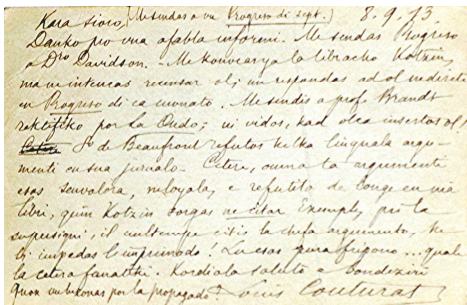 Kara sioro, (Me sendas a vu Progreso di sept.) 8.9.13.
Danko pro vua afabla informi. Me sendas Progreso
a Dro Davidson. – Me konocas ya la libracho Kotzin,
ma ne intencas recensar ol; ni respondas ad ol nedirete
en Progreso di ca monato. Me sendis a prof. Brandt
rektifiko por La Ondo; ni vidos, kad ol ca insertos ol!
So de Beaufront refutos kelka linguala argu-
menti en sua jurnalo. Cetere, omna ta argumenti
esas senvalora, neloyala, e refutita de longe en nia
libri, quin Kotzin sorgas ne citar. Exemple, pri la
supersigni, il multempe citis la chefa argumento, ke
li impedas l'imprimado! Lu esas pura fripono ... quale
la cetera fanatiki. Kordiala saluto e bondeziri
Louis Couturat